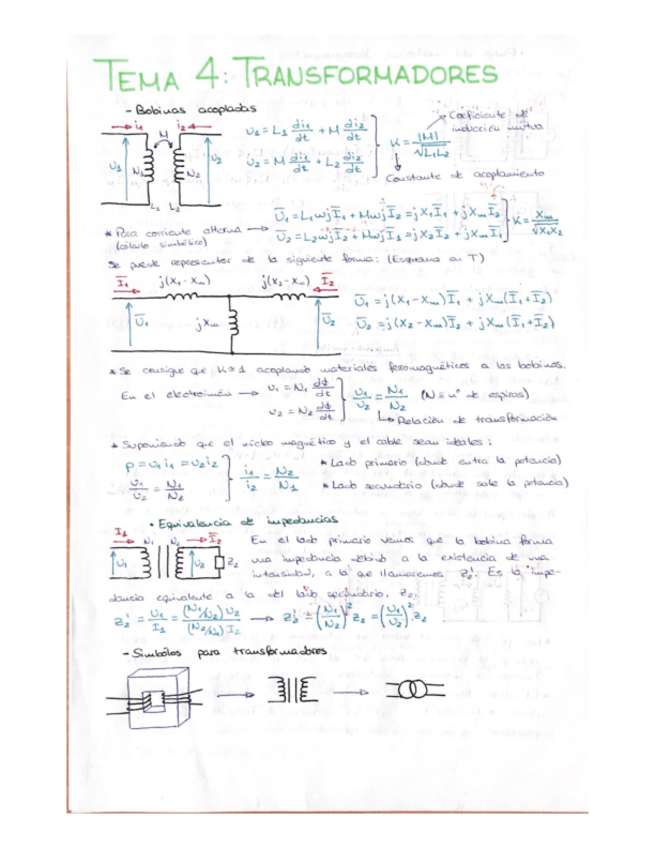 TEMA 4: TRANSFORMADORES
- Bobinas acopladas
i1 i2 M U1 N1 N2 U2 L1 L2
U1 = L1 di1/dt + M di2/dt
U2 = M di1/dt + L2 di2/dt
K = |M|/√L1L2
Coeficiente de inducción mutua
Constante de acoplamiento
* Para corriente alterna → (cálculo simbólico)
U1 = L1ωjI1 + MωjI2 = jX1I1 + jXmI2
U2 = L2ωjI2 + MωjI1 = jX2I2 + jXmI1
K = Xm/√X1X2
Se puede representar de la siguiente forma: (Esquema en T)
I1 j(X1 - Xm) j(X2 - Xm) I2
U1 jXm U2
U1 = j(X1 - Xm)I1 + jXm(I1 + I2)
U2 = j(X2 - Xm)I2 + jXm(I1 + I2)
* Se consigue que K≈1 acoplando materiales ferromagnéticos a las bobinas.
En el electroimán → U1 = N1 dϕ/dt
U2 = N2 dϕ/dt
U1/U2 = N1/N2 (N ≡ nº de espiras)
Relación de transformación
* Suponiendo que el núcleo magnético y el cable sean ideales:
p = U1 i1 = U2 i2
U1/U2 = N1/N2
i1/i2 = N2/N1
* Lado primario (donde entra la potencia)
* Lado secundario (donde sale la potencia)
• Equivalencia de impedancias
I1 N1 N2 I2 U1 U2 Z2
En el lado primario vemos que la bobina forma
una impedancia debido a la existencia de una
intensidad, a la que llamaremos Z2'. Es la impe-
dancia equivalente a la del lado secundario, Z2.
Z2' = U1/I1 = (N1/N2) U2/(N2/N1) I2 → Z2' = (N1/N2)² Z2 = (U1/U2)² Z2
- Símbolos para transformadores